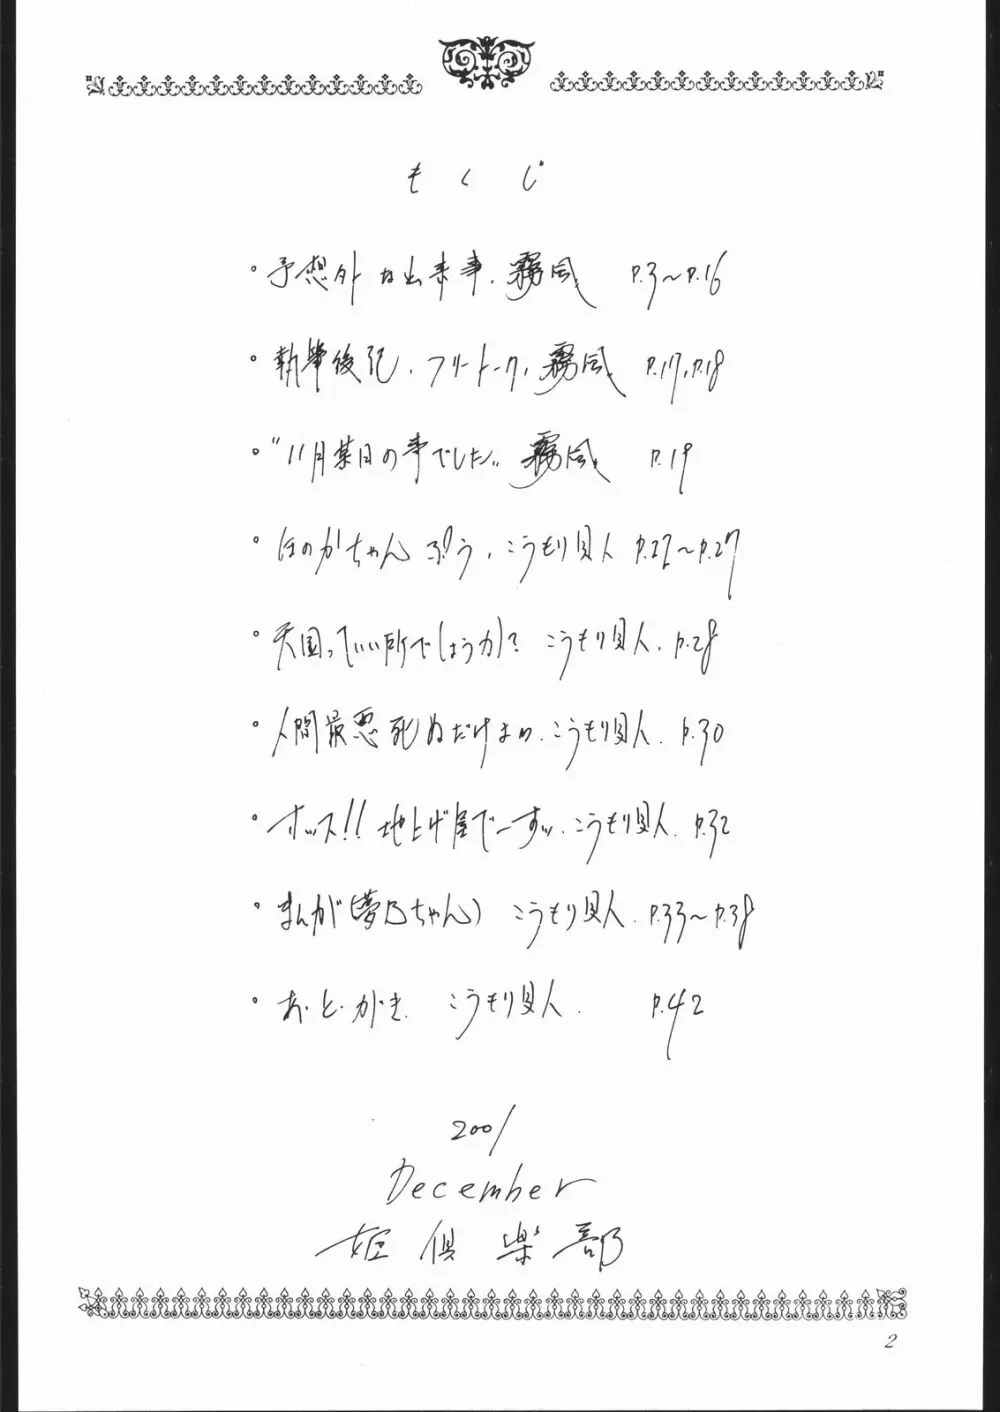 もくじ
。予想外な出来事. 霧風 P.3〜P.16
。執筆後記. フリートーク. 霧風 P.17, P.18
。"11月某日の事でした" 霧風 P.19
。ほのかちゃんぷう. こうもり貝人 P.22〜P.27
。天国っていい所でしょうか? こうもり貝人. P.28
。人間最悪死ぬだけまわ. こうもり貝人. P.30
。オッス!! 地上げ屋でーすッ. こうもり貝人. P.32
。まんが(夢乃ちゃん) こうもり貝人. P.33〜P.38
。あ・と・がき. こうもり貝人. P.42
2001
December
姫倶楽部
2